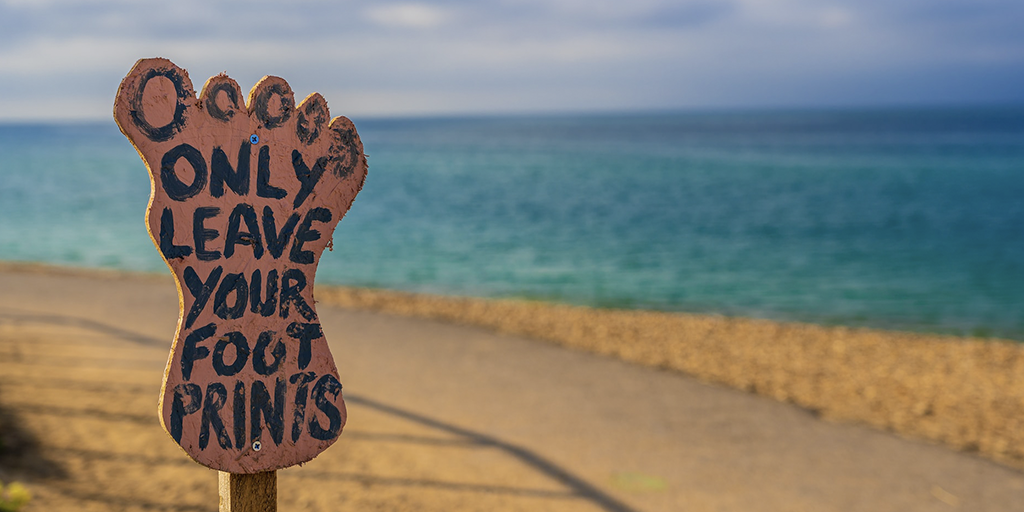 ONLY
LEAVE
YOUR
FOOT
PRINTS